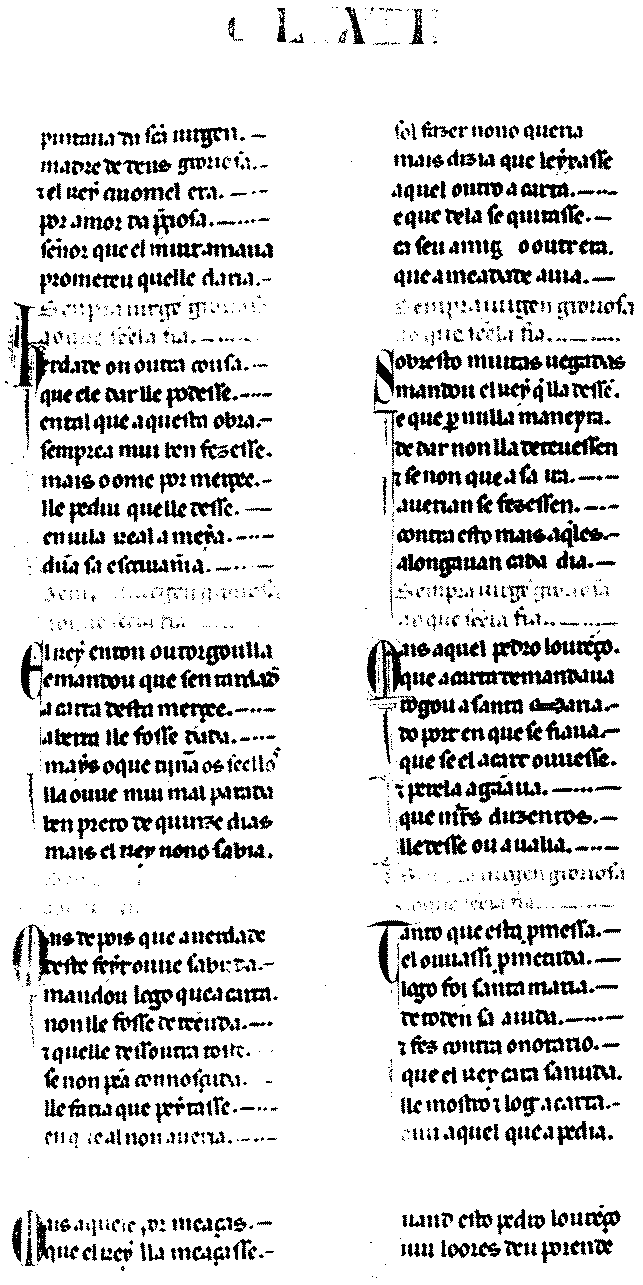 pintana da sc̃a uirgen.
madre de deus groriosa.
⁊ el Rey a que mel era.
por amor da p̃ciosa.
sen̄or que el muit amaua
prometeu quelle daria.
Sempra uirgẽ groriosa
ao que sẽela fia.
Erdade ou outra cousa.
que ele dar lle podesse.
en tal que aquesta obra.
sempre a mui ben fezesse.
mais o ome por merçee.
lle pediu quelle desse.
en uila real a
dũa sa escriuanĩa.
El Rey enton outorgoulla
e mandou que sen tardãd
a carta desta merçee.
aberta lle fosse dada.
mays o que tijña os seelloˢ
lla ouue mui mal parada
ben preto de quinze dias
mais el Rey nono sabia.
Mas depois que a uerdade
deste feyt ouue sabuda.
mandou logo que a carta.
non lle fosse deteuda.
⁊ quelle
se non
lle faria que peytasse.
en q real non aueria.
Mais aquele por meaças.
que el Rey lla meaçasse.
sol fazer nono queria
mais dizia que leyxasse
aquel outro a carta.
e que dela se quitasse.
ca seu amig o outr era.
que a meadade auia.
Sempra uirgen groriosa
ao que sẽela fia.
Sobresto muitas uegadas
mandou el Rey q̃ lla desse.
e que ꝑ nulla maneyra.
de dar non lla deteuessen
⁊ senon que a sa ira.
auerian se fezessen.
contra esto mais aq̃les.
alongauan cada dia.
Sempra uirgẽ groriosa
ao que sẽela fia.
Mais aquel pedro lourẽço.
que a carta demandaua
rogou a santa maria.
do port en que se fiaua.
que se el a cart ouuesse.
⁊ per ela a gãaua.
que mr̃s duzentos.
lle desse ou a ualia.
Sempra uirgen groriosa
ao que sẽela fia.
Tanto que esta p̃messa.
el ouu assi p̃metuda.
logo foi santa maria.
de todẽn sa aiuda.
⁊ fez contra o notario.
que el Rey cata sanuda.
lle mostrou log a carta.
aquel que a pedia.
uand esto pedro lourẽço
mui loores deu porende